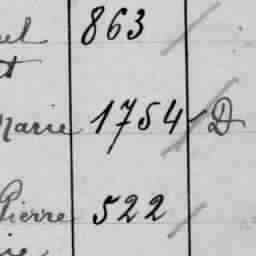 863
t
Marie 1754 D
Pierre 522